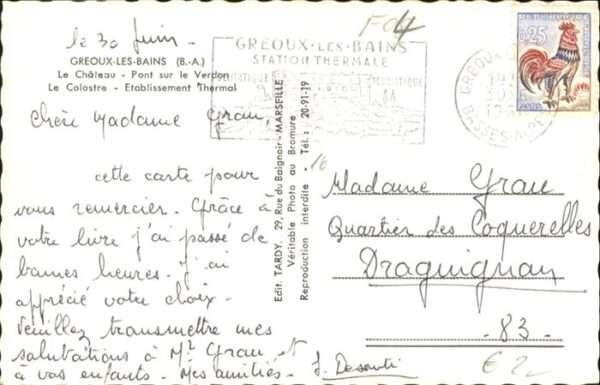 le 30 Juin -
GREOUX-LES-BAINS (B.-A.)
Le Château - Pont sur le Verdon
Le Colostre - Etablissement Thermal
Chère Madame Grau,
cette carte pour
vous remercier. Grâce à
votre livre j'ai passé de
bonnes heures. J'ai
apprécié votre choix.
Veuillez transmettre mes
salutations à Mr Grau, et
à vos enfants. Mes amitiés -
Edit. TARDY, 29, Rue du Baignoir - MARSEILLE
Véritable Photo au Bromure
Reproduction interdite - Tél.: 20-91-19
F04
GREOUX-LES-BAINS
STATION THERMALE
0,25
GREOUX
BASSES-ALPES
16
Madame Grau
Quartier des Coquerelles
Draguignan
- 83 -
€ 2